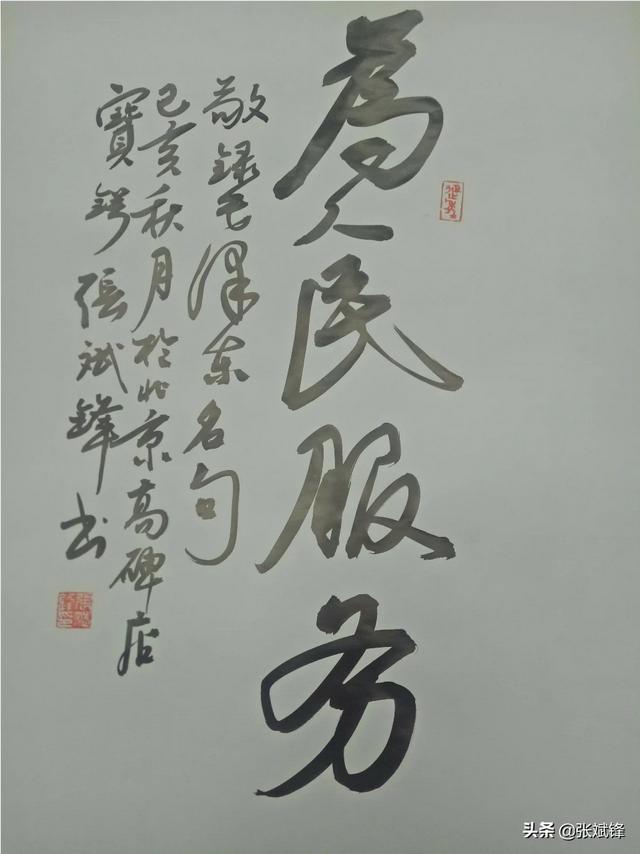 為人民服务
敬録毛泽东名句
己亥秋月於北京高碑店
寶鍔張斌鋒书
头条 @张斌锋